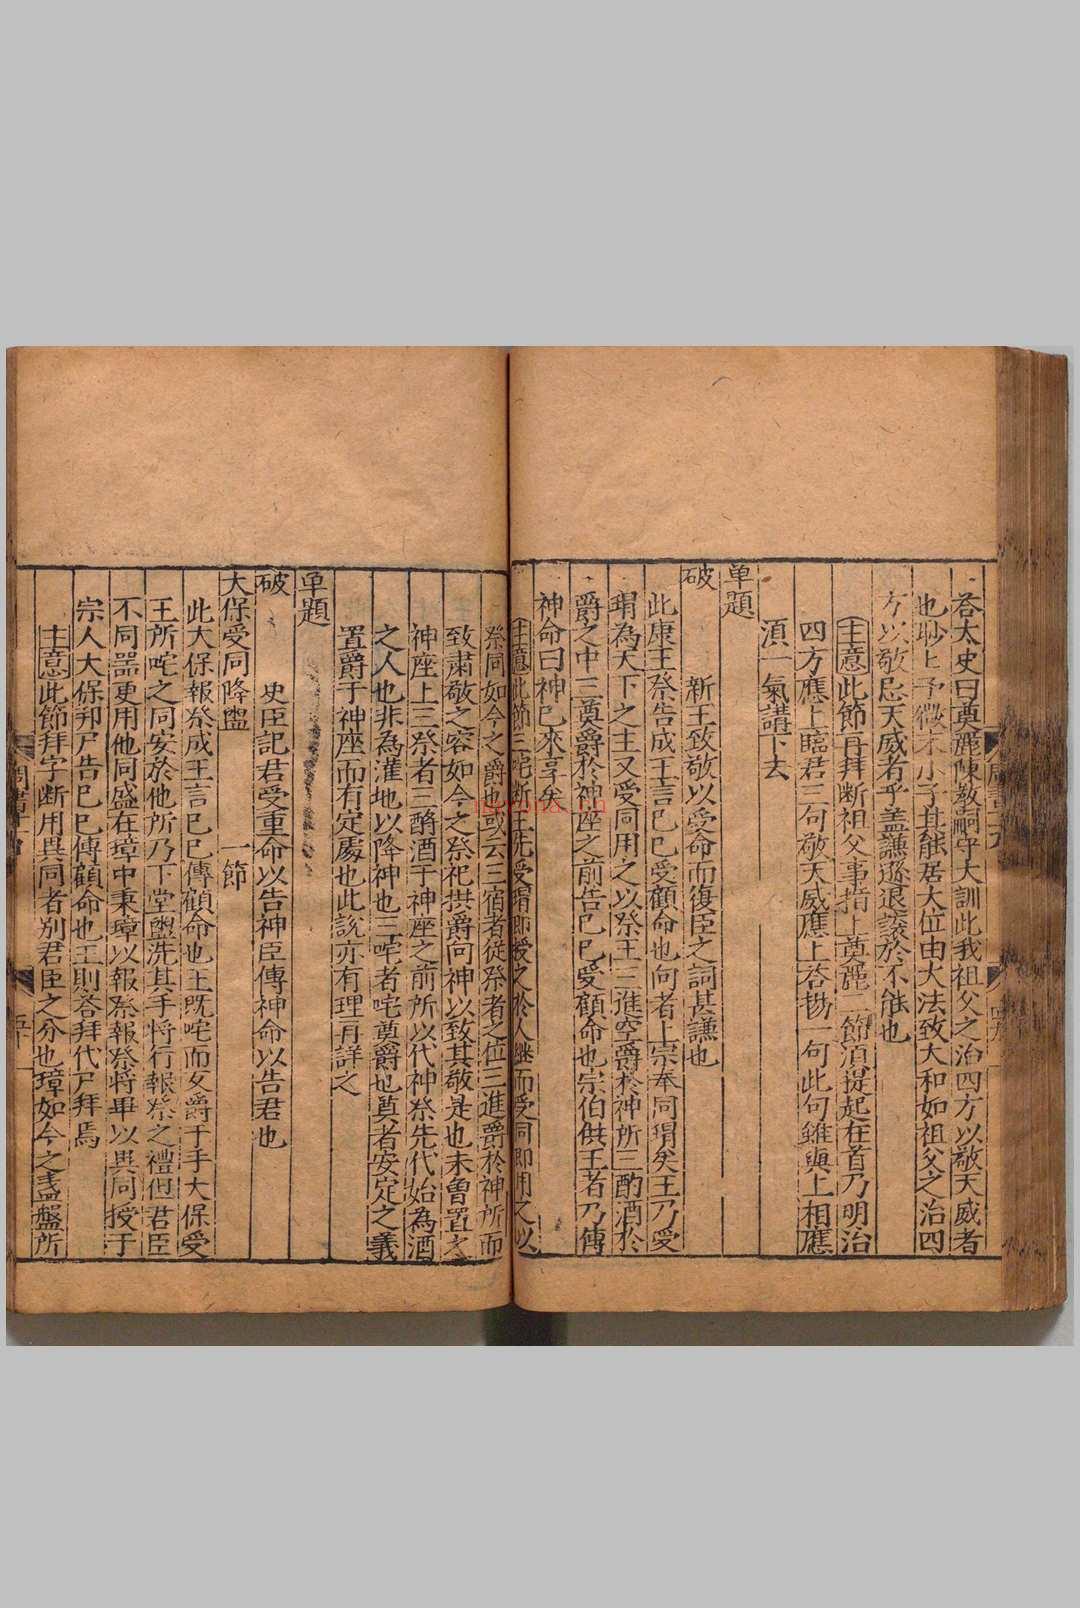 荅太史曰奠麗陳教嗣守大訓此我祖父之治四方以敬天威者
也眇上予微末小子其能居大位由大法致大和如祖父之治四
方以敬忌天威者乎盖謙遜退讓於不能也
主意此節再拜斷祖父事指上奠麗二節湏提起在首乃明治
四方應上臨君三句敬天威應上荅揚一句此句雖與上相應
湏一氣講下去
单題
破 新王致敬以受命而復臣之詞甚謙也
此康王祭告成王言已巳受顧命也向者上宗奉同瑁矣王乃受
瑁為天下之主又受同用之以祭王三進空爵於神所三酌酒於
爵之中三奠爵於神座之前告已巳受顧命也宗伯供王者乃傳
神命曰神巳來享矣
主意此節三咤斷王先受瑁即授之於人継而受同即用之以
祭同如今之爵也或云三宿者從祭者之位三進爵於神所而
致肅敬之容如今之祭祀拱爵向神以致其敬是也未曾置之
神座上三祭者三酹酒于神座之前所以代神祭先代始為酒
之人也非為灌地以降神也三咤者咤奠爵也奠者安定之義
置爵于神座而有定處也此說亦有理再詳之
单題
破 史臣記君受重命以告神臣傳神命以告君也
大保受同降盥 一節
此大保報祭成王言已巳傳顧命也王既咤而反爵于手大保受
王所咤之同安於他所乃下堂盥洗其手將行報祭之禮但君臣
不同器更用他同盛在璋中秉璋以報祭報祭將畢以異同授于
宗人大保拜尸告已巳傳顧命也王則荅拜代尸拜焉
主意此節拜字斷用異同者別君臣之分也璋如今之盞盤所